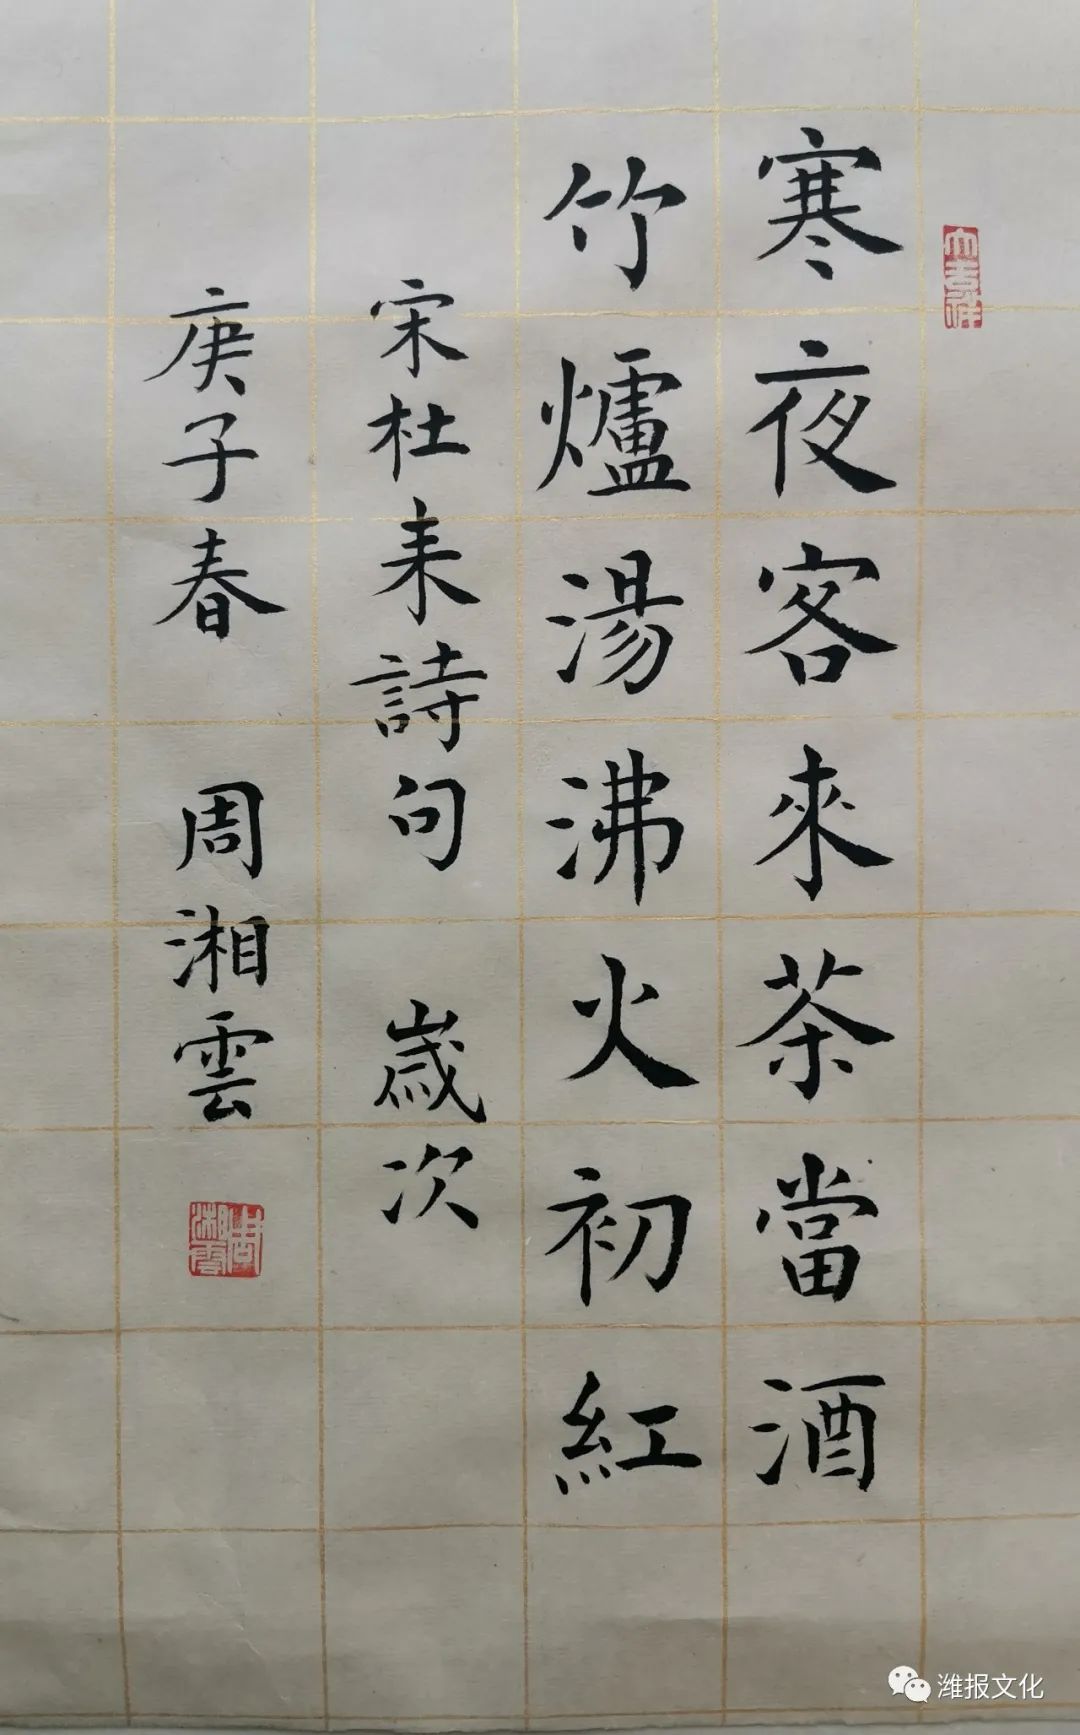 寒夜客來茶當酒
竹爐湯沸火初紅
宋杜耒詩句 歲次
庚子春 周湘雲
大吉祥
周湘雲
潍报文化